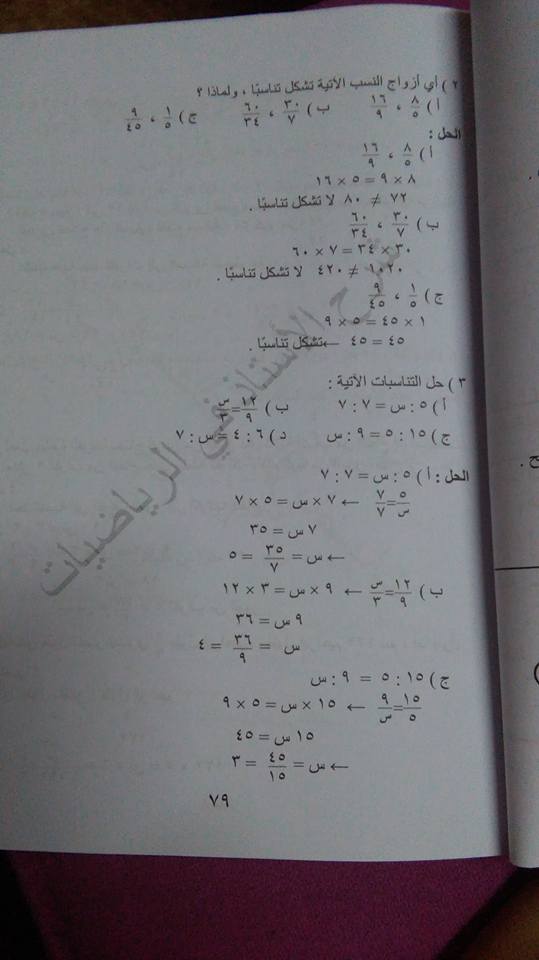 ٢ ) أي أزواج النسب الآتية تشكل تناسبًا ، ولماذا ؟
أ ) ٨/٥ ، ١٦/٩ ب ) ٣٠/٧ ، ٦٠/٣٤ ج ) ١/٥ ، ٩/٤٥
الحل :
أ ) ٨/٥ ، ١٦/٩
٨ × ٩ = ٥ × ١٦
٧٢ ≠ ٨٠ لا تشكل تناسبًا .
ب ) ٣٠/٧ ، ٦٠/٣٤
٣٠ × ٣٤ = ٧ × ٦٠
١٠٢٠ ≠ ٤٢٠ لا تشكل تناسبًا .
ج ) ١/٥ ، ٩/٤٥
١ × ٤٥ = ٥ × ٩
٤٥ = ٤٥ ← تشكل تناسبًا .
٣ ) حل التناسبات الآتية :
أ ) ٥ : س = ٧ : ٧ ب ) ١٢/٩ = س/٣
ج ) ١٥ : ٥ = ٩ : س د ) ٦ : ٤ = س : ٧
الحل : أ ) ٥ : س = ٧ : ٧
٥/س = ٧/٧ ← ٧ × س = ٥ × ٧
٧ س = ٣٥
← س = ٣٥/٧ = ٥
ب ) ١٢/٩ = س/٣ ← ٩ × س = ٣ × ١٢
٩ س = ٣٦
س = ٣٦/٩ = ٤
ج ) ١٥ : ٥ = ٩ : س
١٥/٥ = ٩/س ← ١٥ × س = ٥ × ٩
١٥ س = ٤٥
← س = ٤٥/١٥ = ٣
٧٩
شرح الأستاذ في الرياضيات